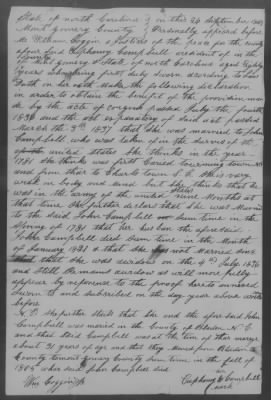 State of north Carolina } on this 26 September 1842
Montgomery County } Personally appeared before
me William Coggin a Justice of the peace for the county
afore said Euphamy Campbell resident of in the
County
of Montgomery & State of north Carolina aged Eighty
years who being first duly sworn according to law
Oath on her oath Make the following declaration
in order to obtain the benefit of the provision made
by the act of congress passed July the 4th
1836 and the act explanatory of said act passed
March the 3rd 1837 that she was married to John
Campbell who was taken up in the Survis of the
united States She thinks in the year
1781 She thinks was first Caried
and from thar to Charls town S.C. He is very
weak in body and mind but She thinks that he
was in the army of the united States nine Months at
that time She further declares that She was Married
to the Said John Campbell sum time in the
Spring of 1781 that her husban the afore said
John Campbell died Sum time in the Month
of January 1831 & that She has not married since
that She was awidow on the 4th July 1836
and Still Remains awidow as will more fully
appear by reference to the proof hereto annexed
Sworn to and subscribed on the day & year above wrote
before
N.B. She further States that She and the afore Said John
Campbell was maried in the County of Bladen N.C.
and that Said Campbell was at the time of thar marage
about 21 years of age and that they Moved from Bladen
County to mont gomery County Sum time in the fall of
1805 whar Said John Campbell died
Wm Coggin JP
Euphamy X Campbell
mark